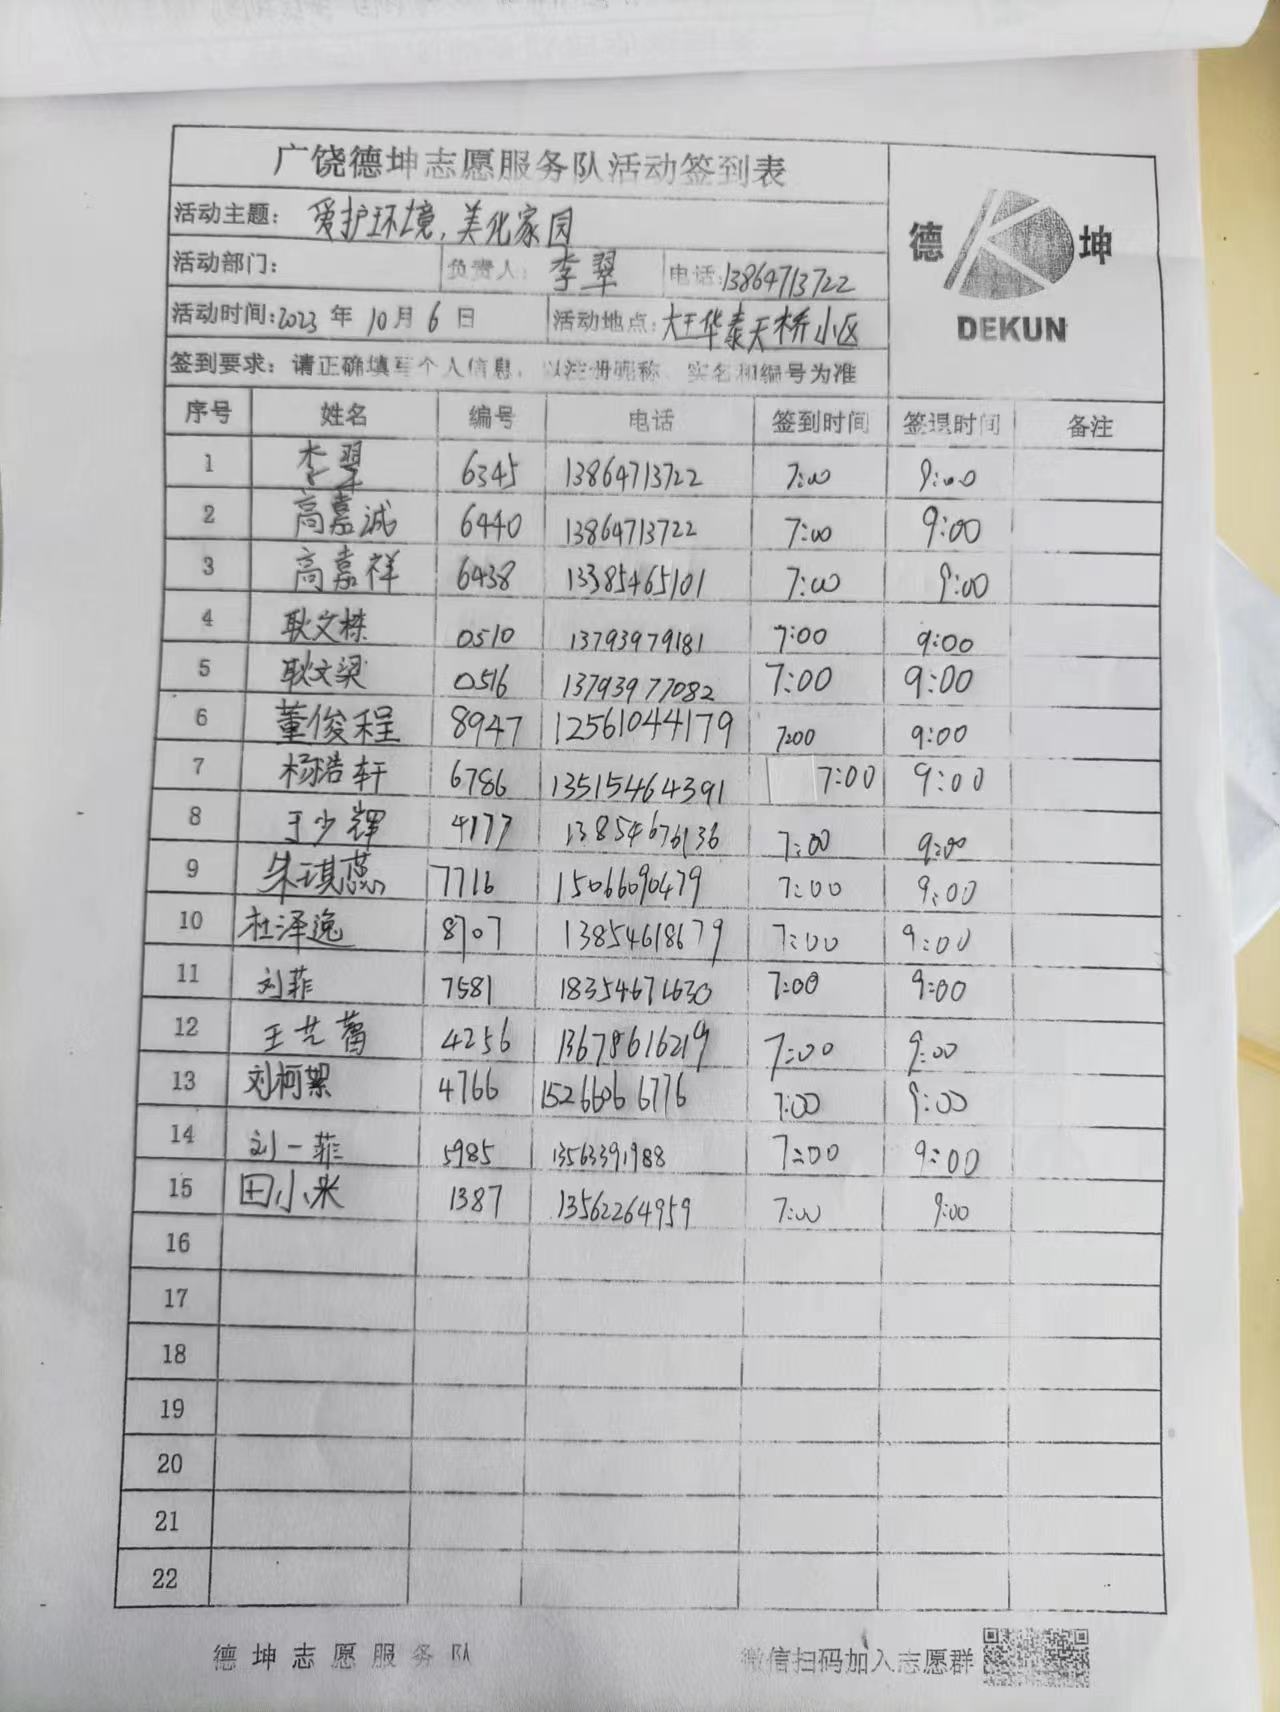 广饶德坤志愿服务队活动签到表
活动主题: 爱护环境,美化家园
德 坤
DEKUN
活动部门: 负责人: 李翠 电话:13864713722
活动时间:2023年10月6日 活动地点:大王华泰天桥小区
签到要求: 请正确填写个人信息,以注册昵称、实名和编号为准
序号 姓名 编号 电话 签到时间 签退时间 备注
1 李翠 6345 13864713722 7:00 9:00
2 高嘉诚 6440 13864713722 7:00 9:00
3 高嘉祥 6438 13385465101 7:00 9:00
4 耿文栋 0510 13793979181 7:00 9:00
5 耿文梁 0516 13793977082 7:00 9:00
6 董俊程 8947 12561044179 7:00 9:00
7 杨皓轩 6786 13515464391 7:00 9:00
8 于少辉 4177 13854676136 7:00 9:00
9 朱琪蕊 7716 15066090479 7:00 9:00
10 杜泽逸 8707 13854618679 7:00 9:00
11 刘菲 7581 18354671630 7:00 9:00
12 王艺萌 4256 13678616219 7:00 9:00
13 刘柯絮 4766 15266066776 7:00 9:00
14 刘一菲 5985 13563391988 7:00 9:00
15 田小米 1387 13562264959 7:00 9:00
16
17
18
19
20
21
22
德坤志愿服务队 微信扫码加入志愿群